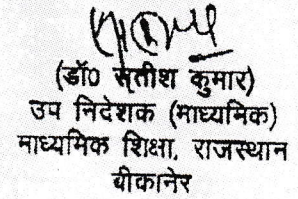 (डॉ0 सतीश कुमार)
उप निदेशक (माध्यमिक)
माध्यमिक शिक्षा, राजस्थान
बीकानेर